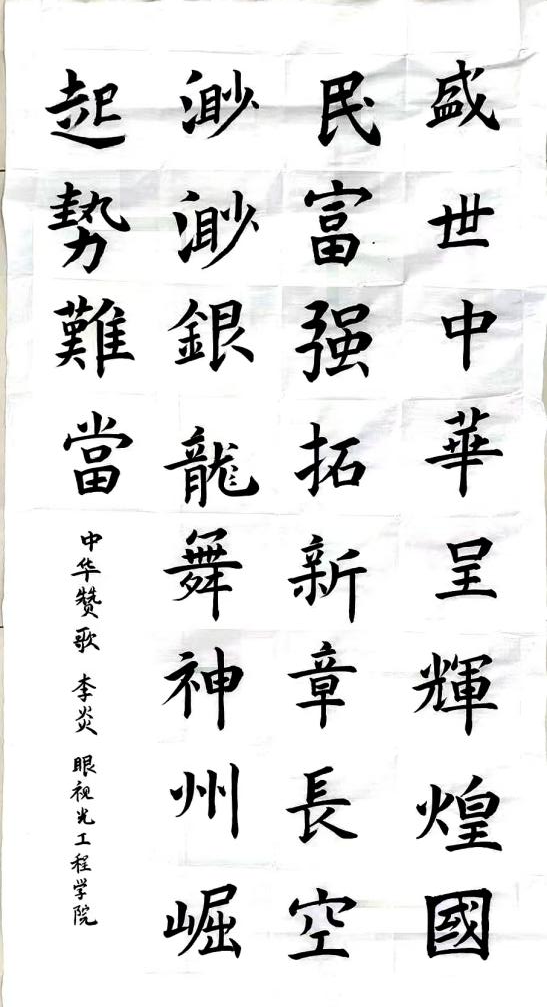 盛世中華呈輝煌國
民富强拓新章長空
渺渺銀龍舞神州崛
起勢難當
中华赞歌 李炎 眼视光工程学院